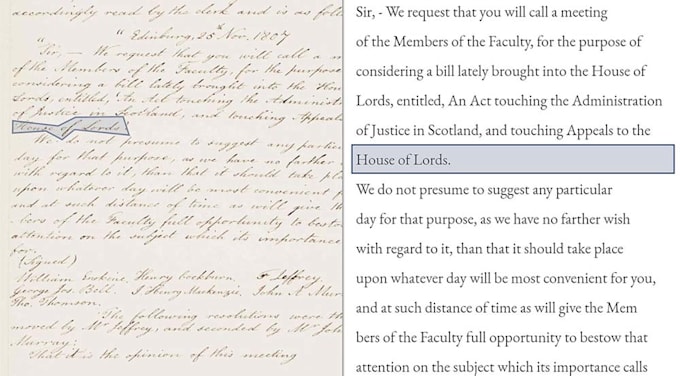 accordingly read by the clerk and is as follo
" " Edinburg, 25th Nov. 1807
" Sir, — We request that you will call a m
of the Members of the Faculty, for the purpose
considering a bill lately brought into the Hou
Lords, entitled, An Act touching the Administ
of Justice in Scotland, and touching Appeals
House of Lords
We do not presume to suggest any partic
day for that purpose, as we have no farther
with regard to it, than that it should take pl
upon whatever day will be most convenient f
and at such distance of time as will give th
bers of the Faculty full opportunity to besto
attention on the subject which its importance
for.
(Signed)
William Erskine, Henry Cockburn, F Jeffrey
George Jos. Bell, J. Henry Mackenzie, John A Murr
Tho. Thomson.
The following resolutions were th
moved by Mr Jeffrey, and seconded by Mr Joh
Murray:
That it is the opinion of this meeting
Sir, - We request that you will call a meeting
of the Members of the Faculty, for the purpose of
considering a bill lately brought into the House of
Lords, entitled, An Act touching the Administration
of Justice in Scotland, and touching Appeals to the
House of Lords.
We do not presume to suggest any particular
day for that purpose, as we have no farther wish
with regard to it, than that it should take place
upon whatever day will be most convenient for you,
and at such distance of time as will give the Mem
bers of the Faculty full opportunity to bestow that
attention on the subject which its importance calls